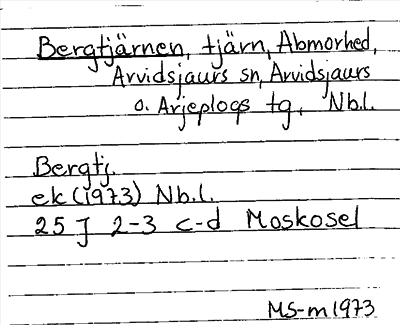 Bergtjärnen, tjärn, Abmorhed,
Arvidsjaurs sn, Arvidsjaurs
o. Arjeplogs tg, Nb.l.
Bergtj.
ek (1973) Nb.l.
25 J 2-3 c-d Moskosel
MS-m 1973